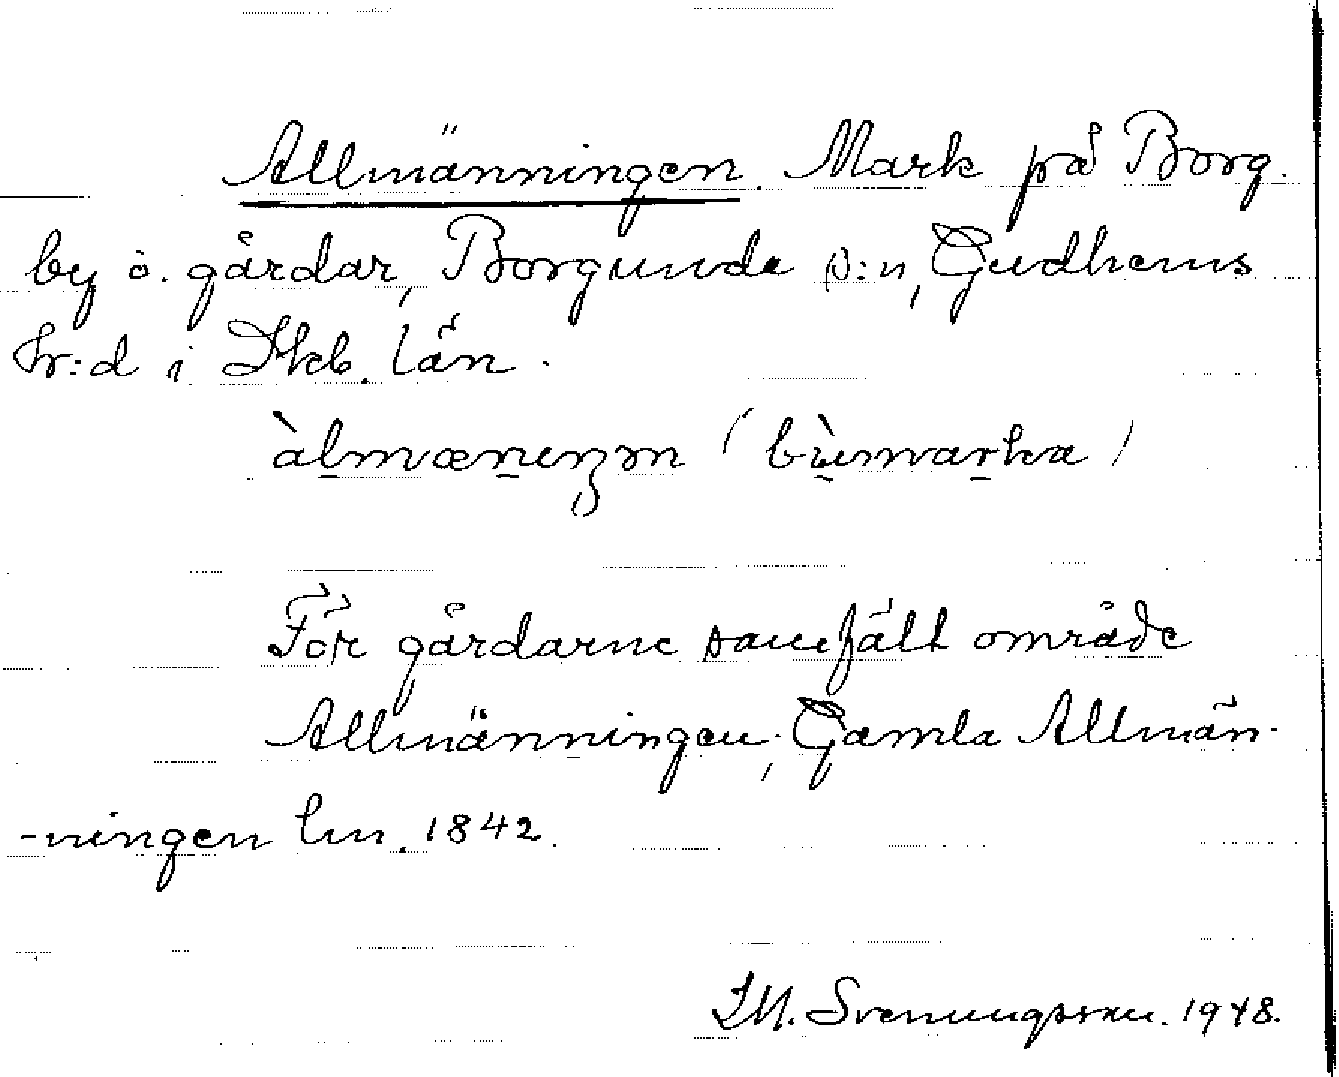 Allmänningen. Mark på Borg.
by ö. gårdar, Borgunda s:n, Gudhems
hr:d i Skb. län.
àlmænıŋən (bùmarka)
För gårdarne samfält område
Allmänningen; Gamla Allmän-
-ningen lm. 1842.
I.M. Svenungsson. 1948.